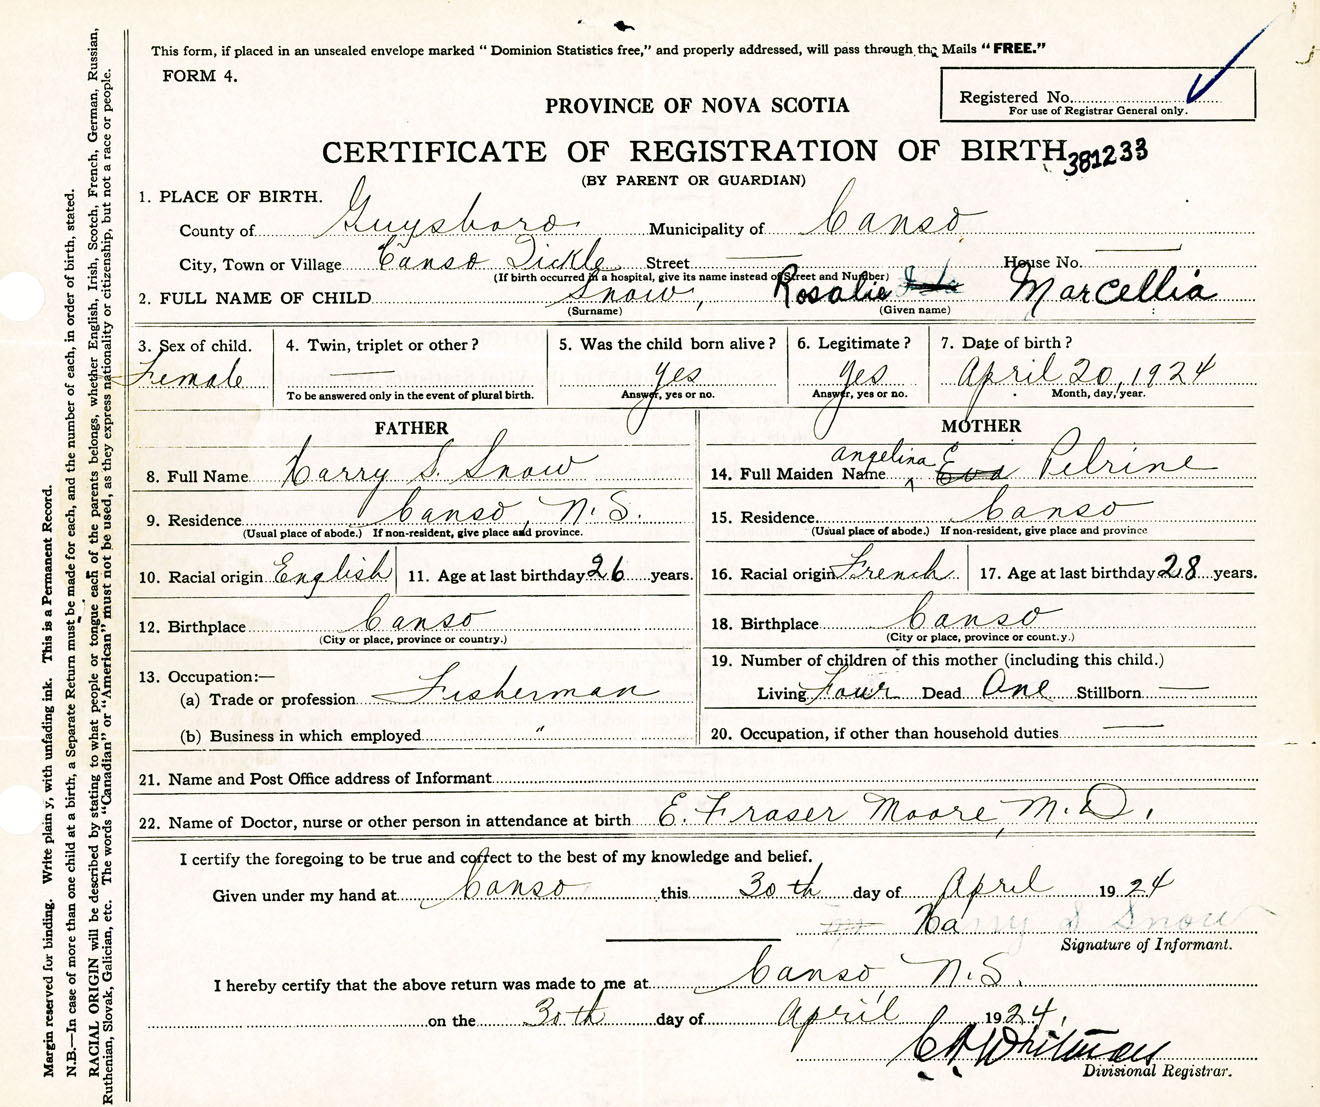 This form, if placed in an unsealed envelope marked "Dominion Statistics free," and properly addressed, will pass through the Mails "FREE."
FORM 4.
Registered No.
For use of Registrar General only.
PROVINCE OF NOVA SCOTIA
CERTIFICATE OF REGISTRATION OF BIRTH 381233
(BY PARENT OR GUARDIAN)
1. PLACE OF BIRTH.
County of Guysboro Municipality of Canso
City, Town or Village Canso Tickle Street — House No. —
(If birth occurred in a hospital, give its name instead of Street and Number)
2. FULL NAME OF CHILD Snow, Rosalie Marcellia
(Surname) (Given name)
3. Sex of child. 4. Twin, triplet or other? 5. Was the child born alive? 6. Legitimate? 7. Date of birth?
Female — yes yes April 20, 1924
To be answered only in the event of plural birth. Answer, yes or no. Answer, yes or no. Month, day, year.
FATHER
8. Full Name Harry S. Snow
9. Residence Canso, N.S.
(Usual place of abode.) If non-resident, give place and province.
10. Racial origin English 11. Age at last birthday 26 years.
12. Birthplace Canso
(City or place, province or country.)
13. Occupation:—
(a) Trade or profession Fisherman
(b) Business in which employed "
MOTHER
14. Full Maiden Name angelina E Eva Pelrine
15. Residence Canso
(Usual place of abode.) If non-resident, give place and province
16. Racial origin French 17. Age at last birthday 28 years.
18. Birthplace Canso
(City or place, province or country.)
19. Number of children of this mother (including this child.)
Living Four Dead One Stillborn —
20. Occupation, if other than household duties —
21. Name and Post Office address of Informant
22. Name of Doctor, nurse or other person in attendance at birth E. Fraser Moore, M.D.
I certify the foregoing to be true and correct to the best of my knowledge and belief.
Given under my hand at Canso this 30th day of April 1924
Harry S Snow
Signature of Informant.
I hereby certify that the above return was made to me at Canso, N.S.
on the 30th day of April 1924,
C H Whitman
Divisional Registrar.
Margin reserved for binding. Write plain y, with unfading ink. This is a Permanent Record.
N.B.—In case of more than one child at a birth, a Separate Return must be made for each, and the number of each, in order of birth, stated.
RACIAL ORIGIN will be described by stating to what people or tongue each of the parents belongs, whether English, Irish, Scotch, French, German, Russian,
Ruthenian, Slovak, Galician, etc. The words "Canadian" or "American" must not be used, as they express nationality or citizenship, but not a race or people.